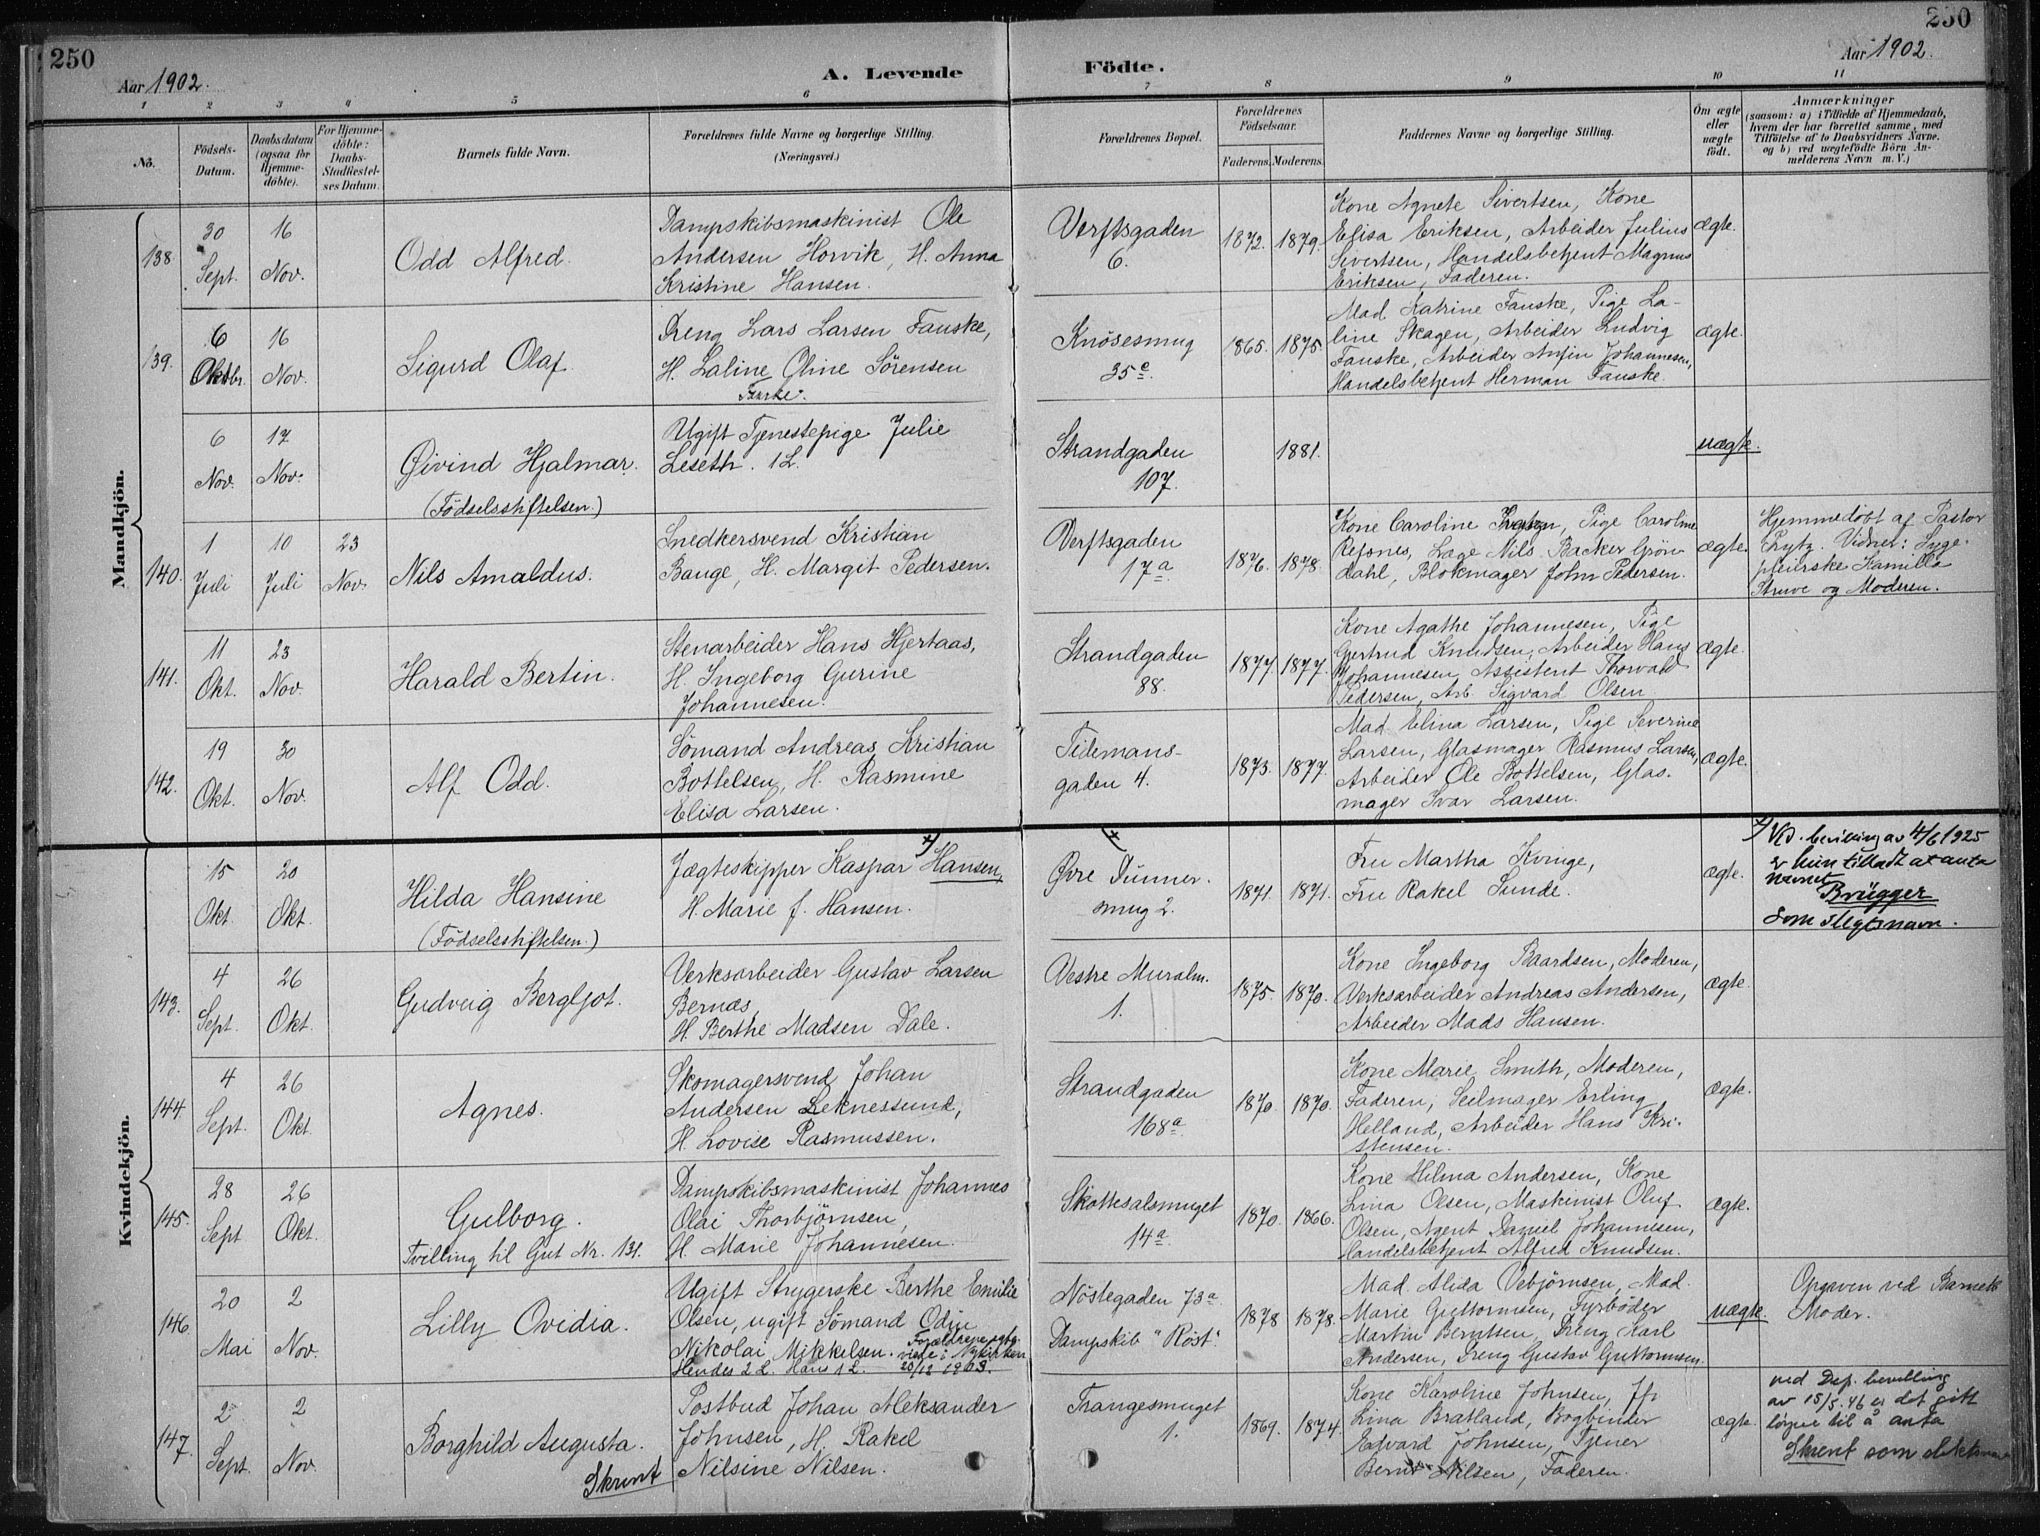 250
250
Aar 1902.
A. Levende
Födte.
Aar 1902.
1
2
3
4
5
6
7
8
9
10
11
No.
Födsels-Datum.
Daabsdatum (ogsaa for Hjemmedöbte).
For Hjemmedöbte: Daabs-Stadfæstelses Datum.
Barnets fulde Navn.
Forældrenes fulde Navne og borgerlige Stilling. (Næringsvei.)
Forældrenes Bopæl.
Forældrenes Födselsaar.
Faderens.
Moderens.
Faddernes Navne og borgerlige Stilling.
Om ægte eller uægte födt.
Anmærkninger
(saasom: a) i Tilfælde af Hjemmedaab,
hvem der har forrettet samme, med
Tilföielse af to Daabsvidners Navne.
og b) ved uægtefödte Börn An-
melderens Navn m. V.)
Mandkjön.
138.
30 Sept.
16 Nov.
Odd Alfred.
Dampskibsmaskinist Ole
Andersen Horvik, H. Anna
Kristine Hansen.
Verftsgaden
6.
1872.
1879.
Kone Agnete Sivertsen, Kone
Elisa Eriksen, Arbeider Julius
Sivertsen, Handelsbetjent Magnus
Eriksen, Faderen.
ægte.
139.
6 Oktbr.
16 Nov.
Sigurd Olaf.
Dreng Lars Larsen Fauske,
H. Laline Oline Sørensen
Knösesmug
35e.
1865.
1875
Mad. Katrine Fauske, Pige La-
line Skagen, Arbeider Ludvig
Fauske, Arbeider Anfin Johannesen,
Handelsbetjent Herman Fauske.
ægte.
6 Nov.
17 Nov.
Øivind Hjalmar.
(Födselsstiftelsen.)
Ugift Tjenestepige Julie
Leseth. 1 L.
Strandgaden
107.
1881.
uægte.
140.
1 Juli
10 Juli
23 Nov.
Nils Amaldus.
Snedkersvend Kristian
Bauge, H. Margit Pedersen.
Verftsgaden
17a
1876.
1878.
Kone Caroline Pige Caroline
Refsnes, Læge Nils Backer Grøn
dahl, Blokmager John Pedersen.
ægte.
Hjemmedöbt af Pastor
Krytz. Vidner: Syge-
pleierske Kamilla
Struve og Moderen.
141.
11 Okt.
23 Nov.
Harald Bertin.
Stenarbeider Hans Hjertaas,
H. Ingeborg Gurine
Johannesen.
Strandgaden
88.
1877.
1877.
Kone Agathe Johannesen, Pige
Gertrud Knudsen, Arbeider Hans
Johannesen, Assistent Thorvald
Pedersen, Arb. Sigvard Olsen.
ægte.
142.
19 Okt.
30 Nov.
Alf Odd.
Sömand Andreas Kristian
Bottelsen, H. Rasmine
Elisa Larsen.
Tidemans-
gaden 4.
1873.
1877.
Mad Elina Larsen, Pige Severine
Larsen, Glasmager Rasmus Larsen,
Arbeider Ole Bottelsen, Glas-
mager Ivar Larsen.
ægte.
Kvindekjön.
15 Okt.
20 Okt.
Hilda Hansine
(Födselsstiftelsen.)
Jægteskipper Kaspar Hansen,
H. Marie f. Hansen.
Øvre Dunner-
smug 2.
1871.
1871.
Fru Martha Kvinge,
Fru Rakel Sunde.
ægte.
Vd. bevilling av 4/6 1925
er hun tilladt at anta
navnet
Brügger
som slegtsnavn.
143.
4 Sept.
26 Okt.
Gudveig Bergljot.
Verksarbeider Gustav Larsen
Bernæs,
H. Berthe Madsen Dale.
Vestre Muralm.
1.
1875.
1870.
Kone Ingeborg Baardsen, Moderen,
Verksarbeider Andreas Andersen,
Arbeider Mads Hansen.
ægte.
144.
4 Sept.
26 Okt.
Agnes.
Skomagersvend Johan
Andersen Leknessund,
H. Lovise Rasmussen.
Strandgaden
168a
1870.
1870.
Kone Marie Smith, Moderen,
Faderen, Seilmager Erling
Helland, Arbeider Hans Kri-
stensen.
ægte.
145.
28 Sept
26 Okt.
Gulborg.
Tvilling til Gut Nr. 131.
Dampskibsmaskinist Johannes
Olai Thorbjörnsen,
H. Marie Johannesen.
Skottesalsmuget
14a
1870.
1866.
Kone Hilma Andersen, Kone
Lina Olsen, Maskinist Oluf
Olsen, Agent Daniel Johannesen,
Handelsbetjent Alfred Knudsen.
ægte.
146.
20 Mai
2 Nov.
Lilly Ovidia.
Ugift Strygerske Berthe Emilie
Olsen, ugift Sömand Odin
Nikolai Mikkelsen. Forældrene
viede i Nykirken
Hendes 2 L. Hans 1 L. 20/12 1903.
Nöstegaden 73a
Dampskib "Röst".
1878
1878.
Mad. Alida Vebjörnsen, Mad.
Marie Guttormsen, Fyrböder
Martin Berntsen, Dreng Karl
Andersen, Dreng Gustav Guttormsen.
uægte.
Opgaven ved Barnets
Moder.
147.
2 Sept.
2 Nov.
Borghild Augusta.
Skrent
Postbud Johan Aleksander
Johnsen, H. Rakel
Nilsine Nilsen.
Trangesmuget
1.
1869.
1874.
Kone Karoline Johnsen, Jfr
Lina Bratland, Bogbinder
Edvard Johnsen, Tjener
Bernt Nilsen, Faderen.
ægte.
ved Dep. bevilling
av 15/5.46 er det gitt
til å anta
Skrent som slektsnavn